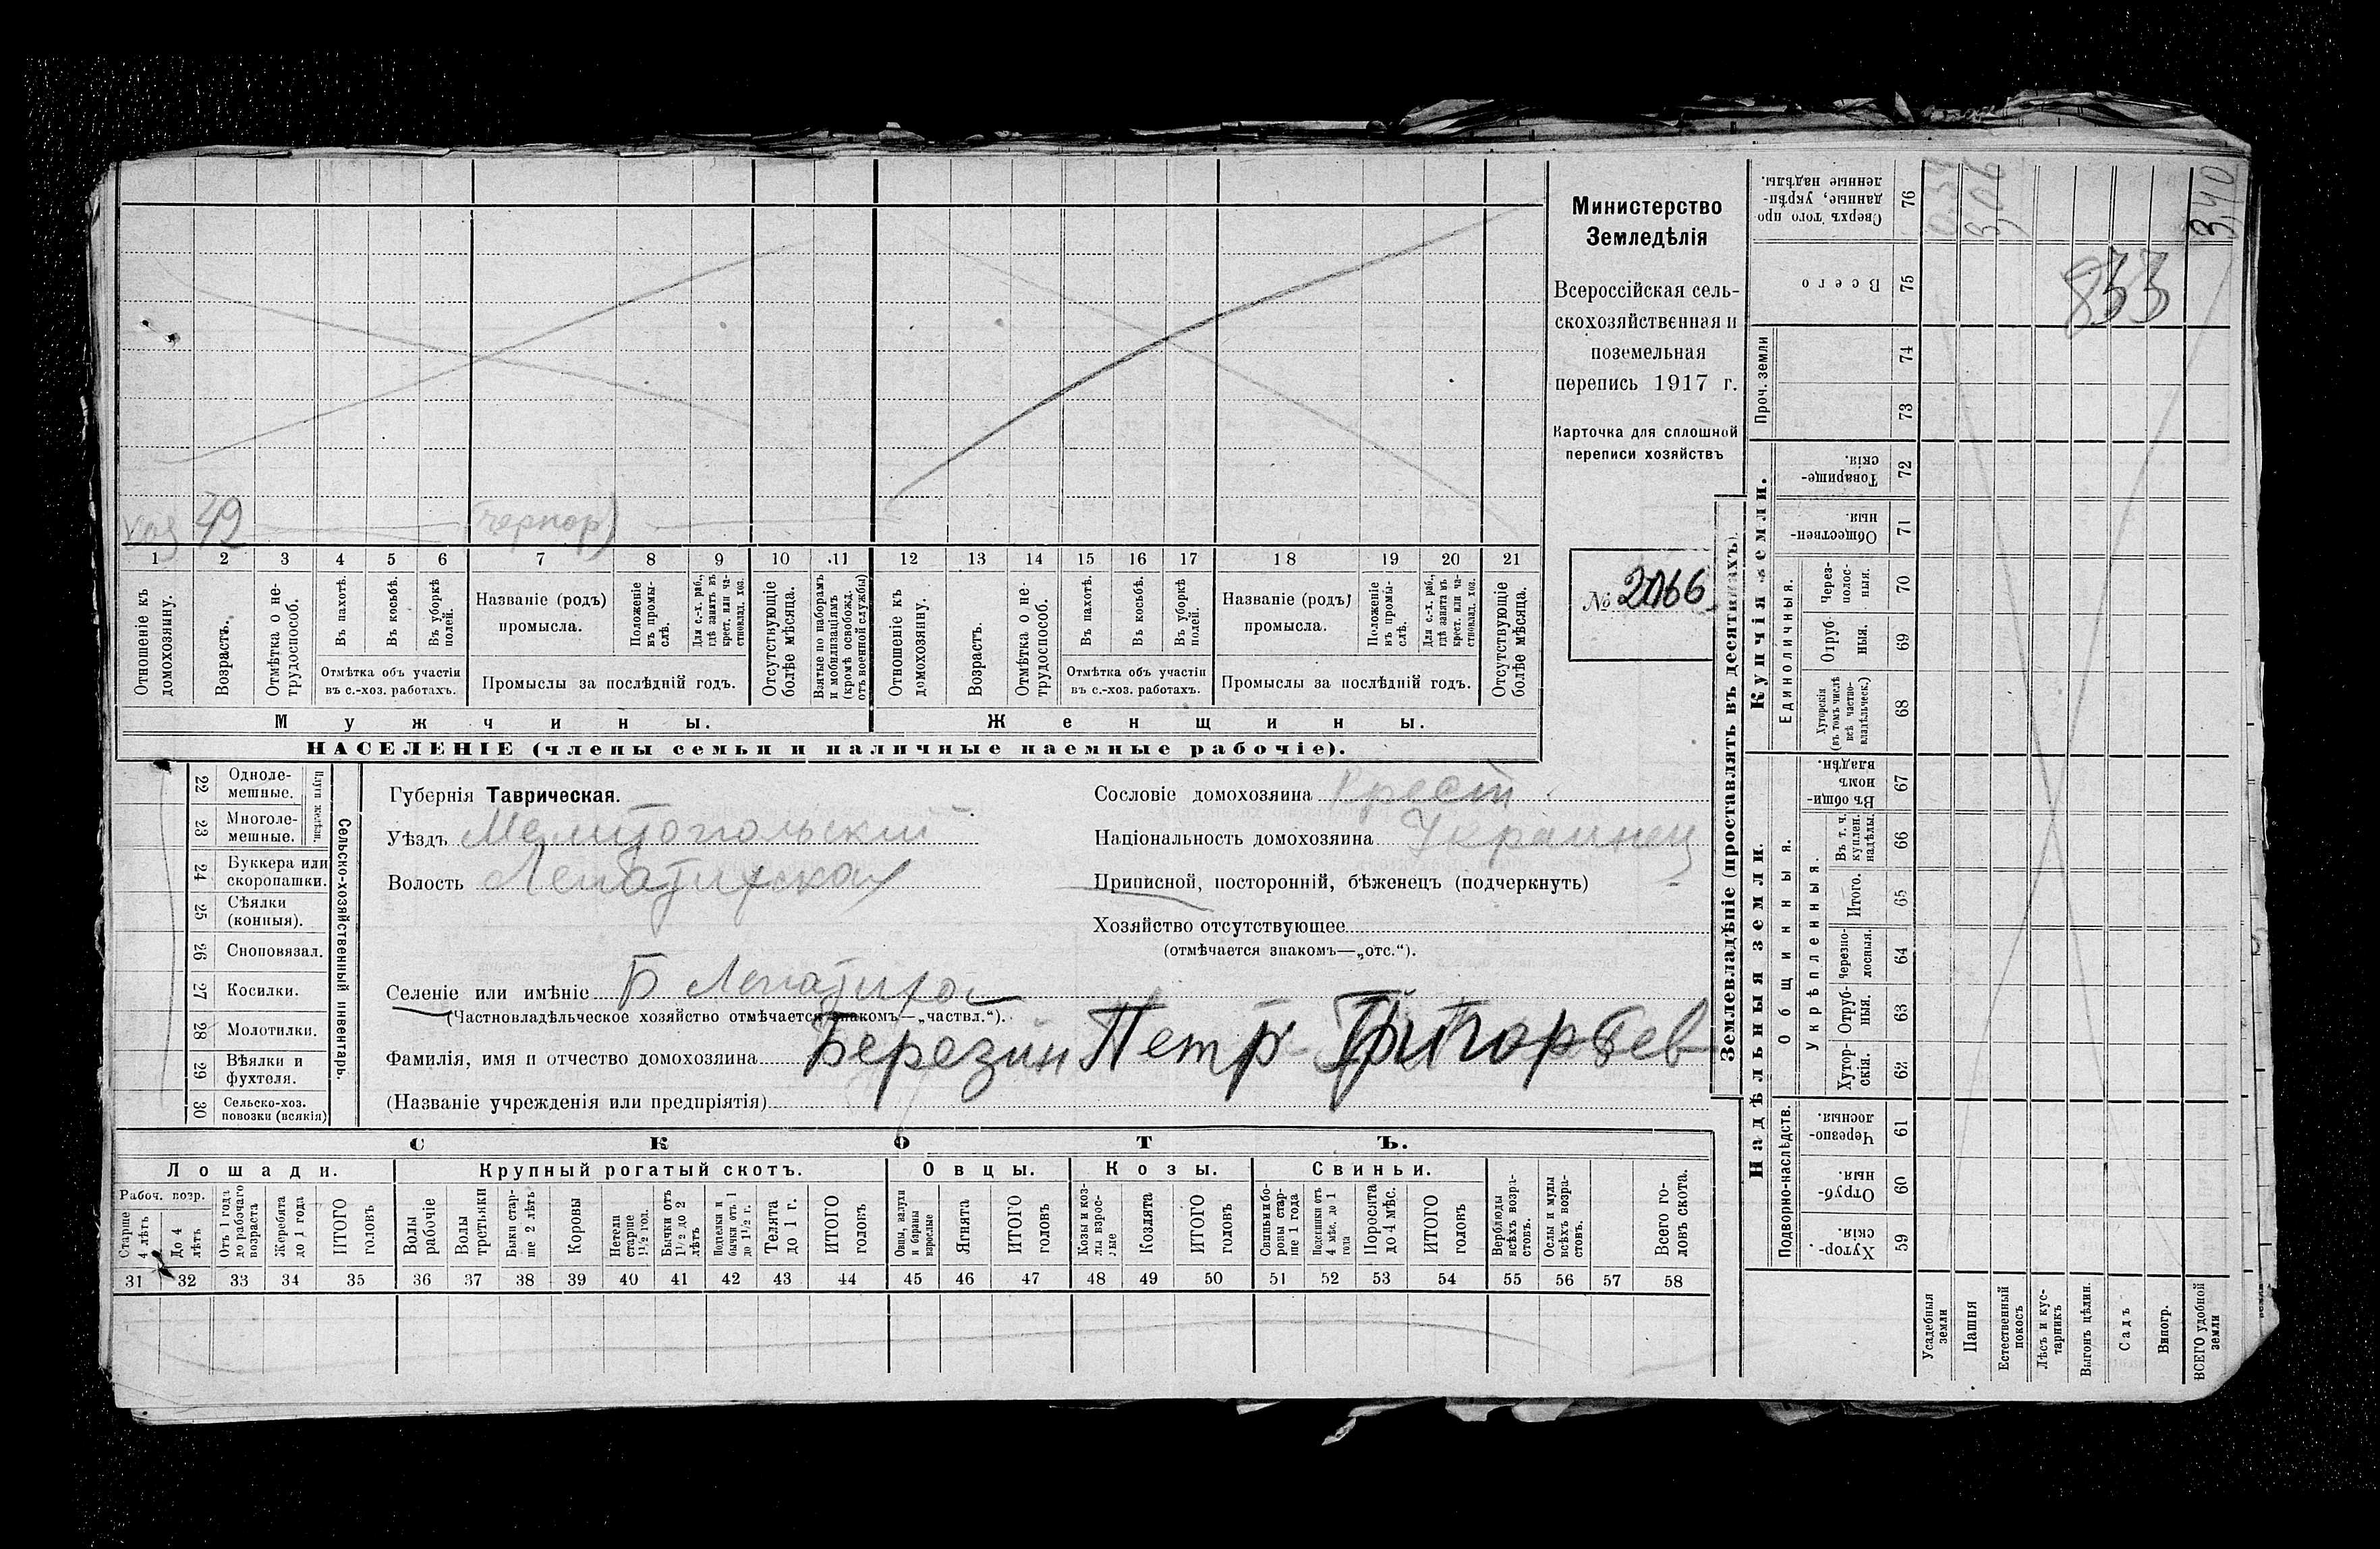 Министерство
Земледѣлія
Всероссійская сель-
скохозяйственная и
поземельная
перепись 1917 г.
Карточка для сплошной
переписи хозяйствъ
№ 2066
хоз 49 (чернор)
1 2 3 4 5 6 7 8 9 10 11 12 13 14 15 16 17 18 19 20 21
Отношеніе къ домохозяину.
Возрастъ.
Отмѣтка о не-трудоспособ.
Въ пахотѣ.
Въ косьбѣ.
Въ уборкѣ полей.
Отмѣтка объ участіи
въ с.-хоз. работахъ.
Названіе (родъ)
промысла.
Положеніе въ промы-слѣ.
Для с.-х. раб., гдѣ занятъ въ крест. или ча-стновлад. хоз.
Промыслы за послѣдній годъ.
Отсутствующіе болѣе мѣсяца.
Взятые по наборамъ и мобилизаціямъ (кромѣ освобожд. отъ военной службы)
Отношеніе къ домохозяину.
Возрастъ.
Отмѣтка о не-трудоспособ.
Въ пахотѣ.
Въ косьбѣ.
Въ уборкѣ полей.
Отмѣтка объ участіи
въ с.-хоз. работахъ.
Названіе (родъ)
промысла.
Положеніе въ промы-слѣ.
Для с.-х. раб., гдѣ занята въ крест. или ча-стновлад. хоз.
Промыслы за послѣдній годъ.
Отсутствующіе болѣе мѣсяца.
Мужчины. Женщины.
НАСЕЛЕНІЕ (члены семьи и наличные наемные рабочіе).
22 Одноле-мешные.
23 Многоле-мешные.
Плуги желѣзн.
24 Буккера или скоропашки.
25 Сѣялки (конныя).
26 Сноповязал.
27 Косилки.
28 Молотилки.
29 Вѣялки и фухтеля.
30 Сельско-хоз. повозки (всякія)
Сельско-хозяйственный инвентарь.
Губернія Таврическая.
Уѣздъ Мелитопольский
Волость Лепатихская
Селеніе или имѣніе Б Лепатиха
(Частновладѣльческое хозяйство отмѣчается знакомъ—„частвл.“).
Фамилія, имя и отчество домохозяина Березин Петр Григорьев
(Названіе учрежденія или предпріятія)
Сословіе домохозяина Крест.
Національность домохозяина Украинец
Приписной, посторонній, бѣженецъ (подчеркнуть)
Хозяйство отсутствующее
(отмѣчается знакомъ—„отс.“).
СКОТЪ.
Лошади. Крупный рогатый скотъ. Овцы. Козы. Свиньи.
Рабоч. возр.
Старше 4 лѣтъ
До 4 лѣтъ
Отъ 1 года до рабочаго возраста
Жеребята до 1 года
ИТОГО головъ
Волы рабочіе
Волы третьяки
Быки стар-ше 2 лѣтъ
Коровы
Нетели старше 1½ год.
Бычки отъ 1½ до 2 лѣтъ
Подтелки и бычки отъ 1 до 1½ г.
Телята до 1 г.
ИТОГО головъ
Овцы, валухи и бараны взрослые
Ягнята
ИТОГО головъ
Козы и коз-лы взрос-лые
Козлята
ИТОГО головъ
Свиньи и бо-ровы стар-ше 1 года
Подсвинки отъ 4 мѣс. до 1 года
Поросята до 4 мѣс.
ИТОГО головъ
Верблюды всѣхъ возра-стовъ.
Ослы и мулы всѣхъ возра-стовъ.
Всего го-ловъ скота.
31 32 33 34 35 36 37 38 39 40 41 42 43 44 45 46 47 48 49 50 51 52 53 54 55 56 57 58
Землевладѣніе (проставлять въ десятинахъ).
Купчія земли.
Надѣльныя земли.
Сверхъ того про-данные, укрѣп-ленные надѣлы. 76
Всего 75
Проч. земли 74 73
Товарище-скія. 72
Обществен-ныя 71
Единоличныя.
Через-полос-ныя. 70
Отруб-ныя. 69
Хуторскія (въ томъ числѣ всѣ частно-владѣльческ.) 68
Въ общи-номъ владѣн. 67
Общинныя.
Укрѣпленныя.
Въ т. ч. куплен. надѣлы. 66
Итого. 65
Черезпо-лосныя. 64
Отруб-ныя. 63
Хутор-скія. 62
Подворно-наслѣдств.
Черезпо-лосныя. 61
Отруб-ныя. 60
Хутор-скія. 59
Усадебныя земли
Пашня
Естественный покосъ
Лѣсъ и кус-тарникъ
Выгонъ цѣлин.
Садъ
Виногр.
ВСЕГО удобной земли
034
306
340
833